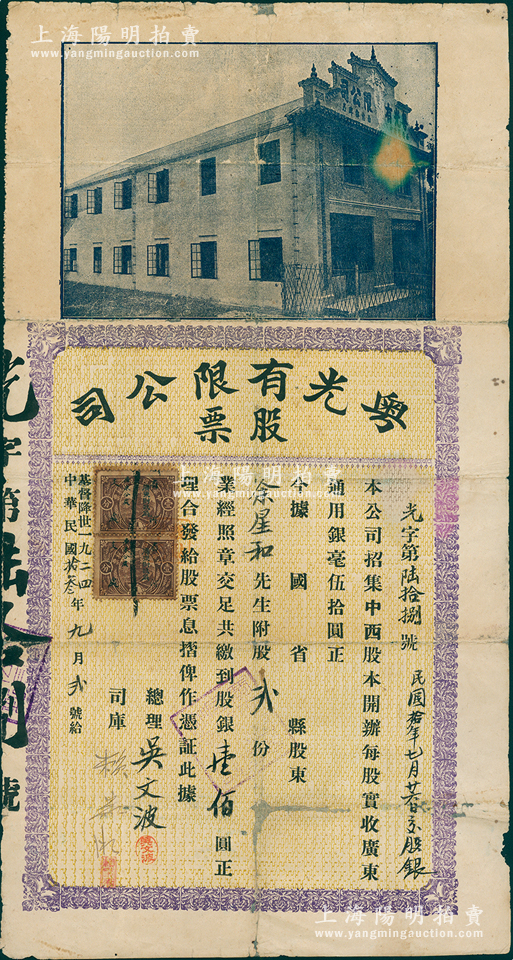 上海陽明拍賣
www.yangmingauction.com
司公限
粵光有限公司
股票
光字第陸拾捌號
民國拾年七月廿日交股銀
本公司招集中西股本開辦每股實收廣東
通用銀毫伍拾圓正
今據 國 省 縣股東
余星和先生附股貳份
業經照章交足共繳到股銀壹佰圓正
理合發給股票息摺俾作憑証此據
總理 吳文波
吳文波
司庫 賴
基督降世一九二四
中華民國拾叁年九月貳號給
光字第陸拾捌號
上海陽明拍賣
www.yangmingauction.com
上海陽明拍賣
www.yangmingauction.com